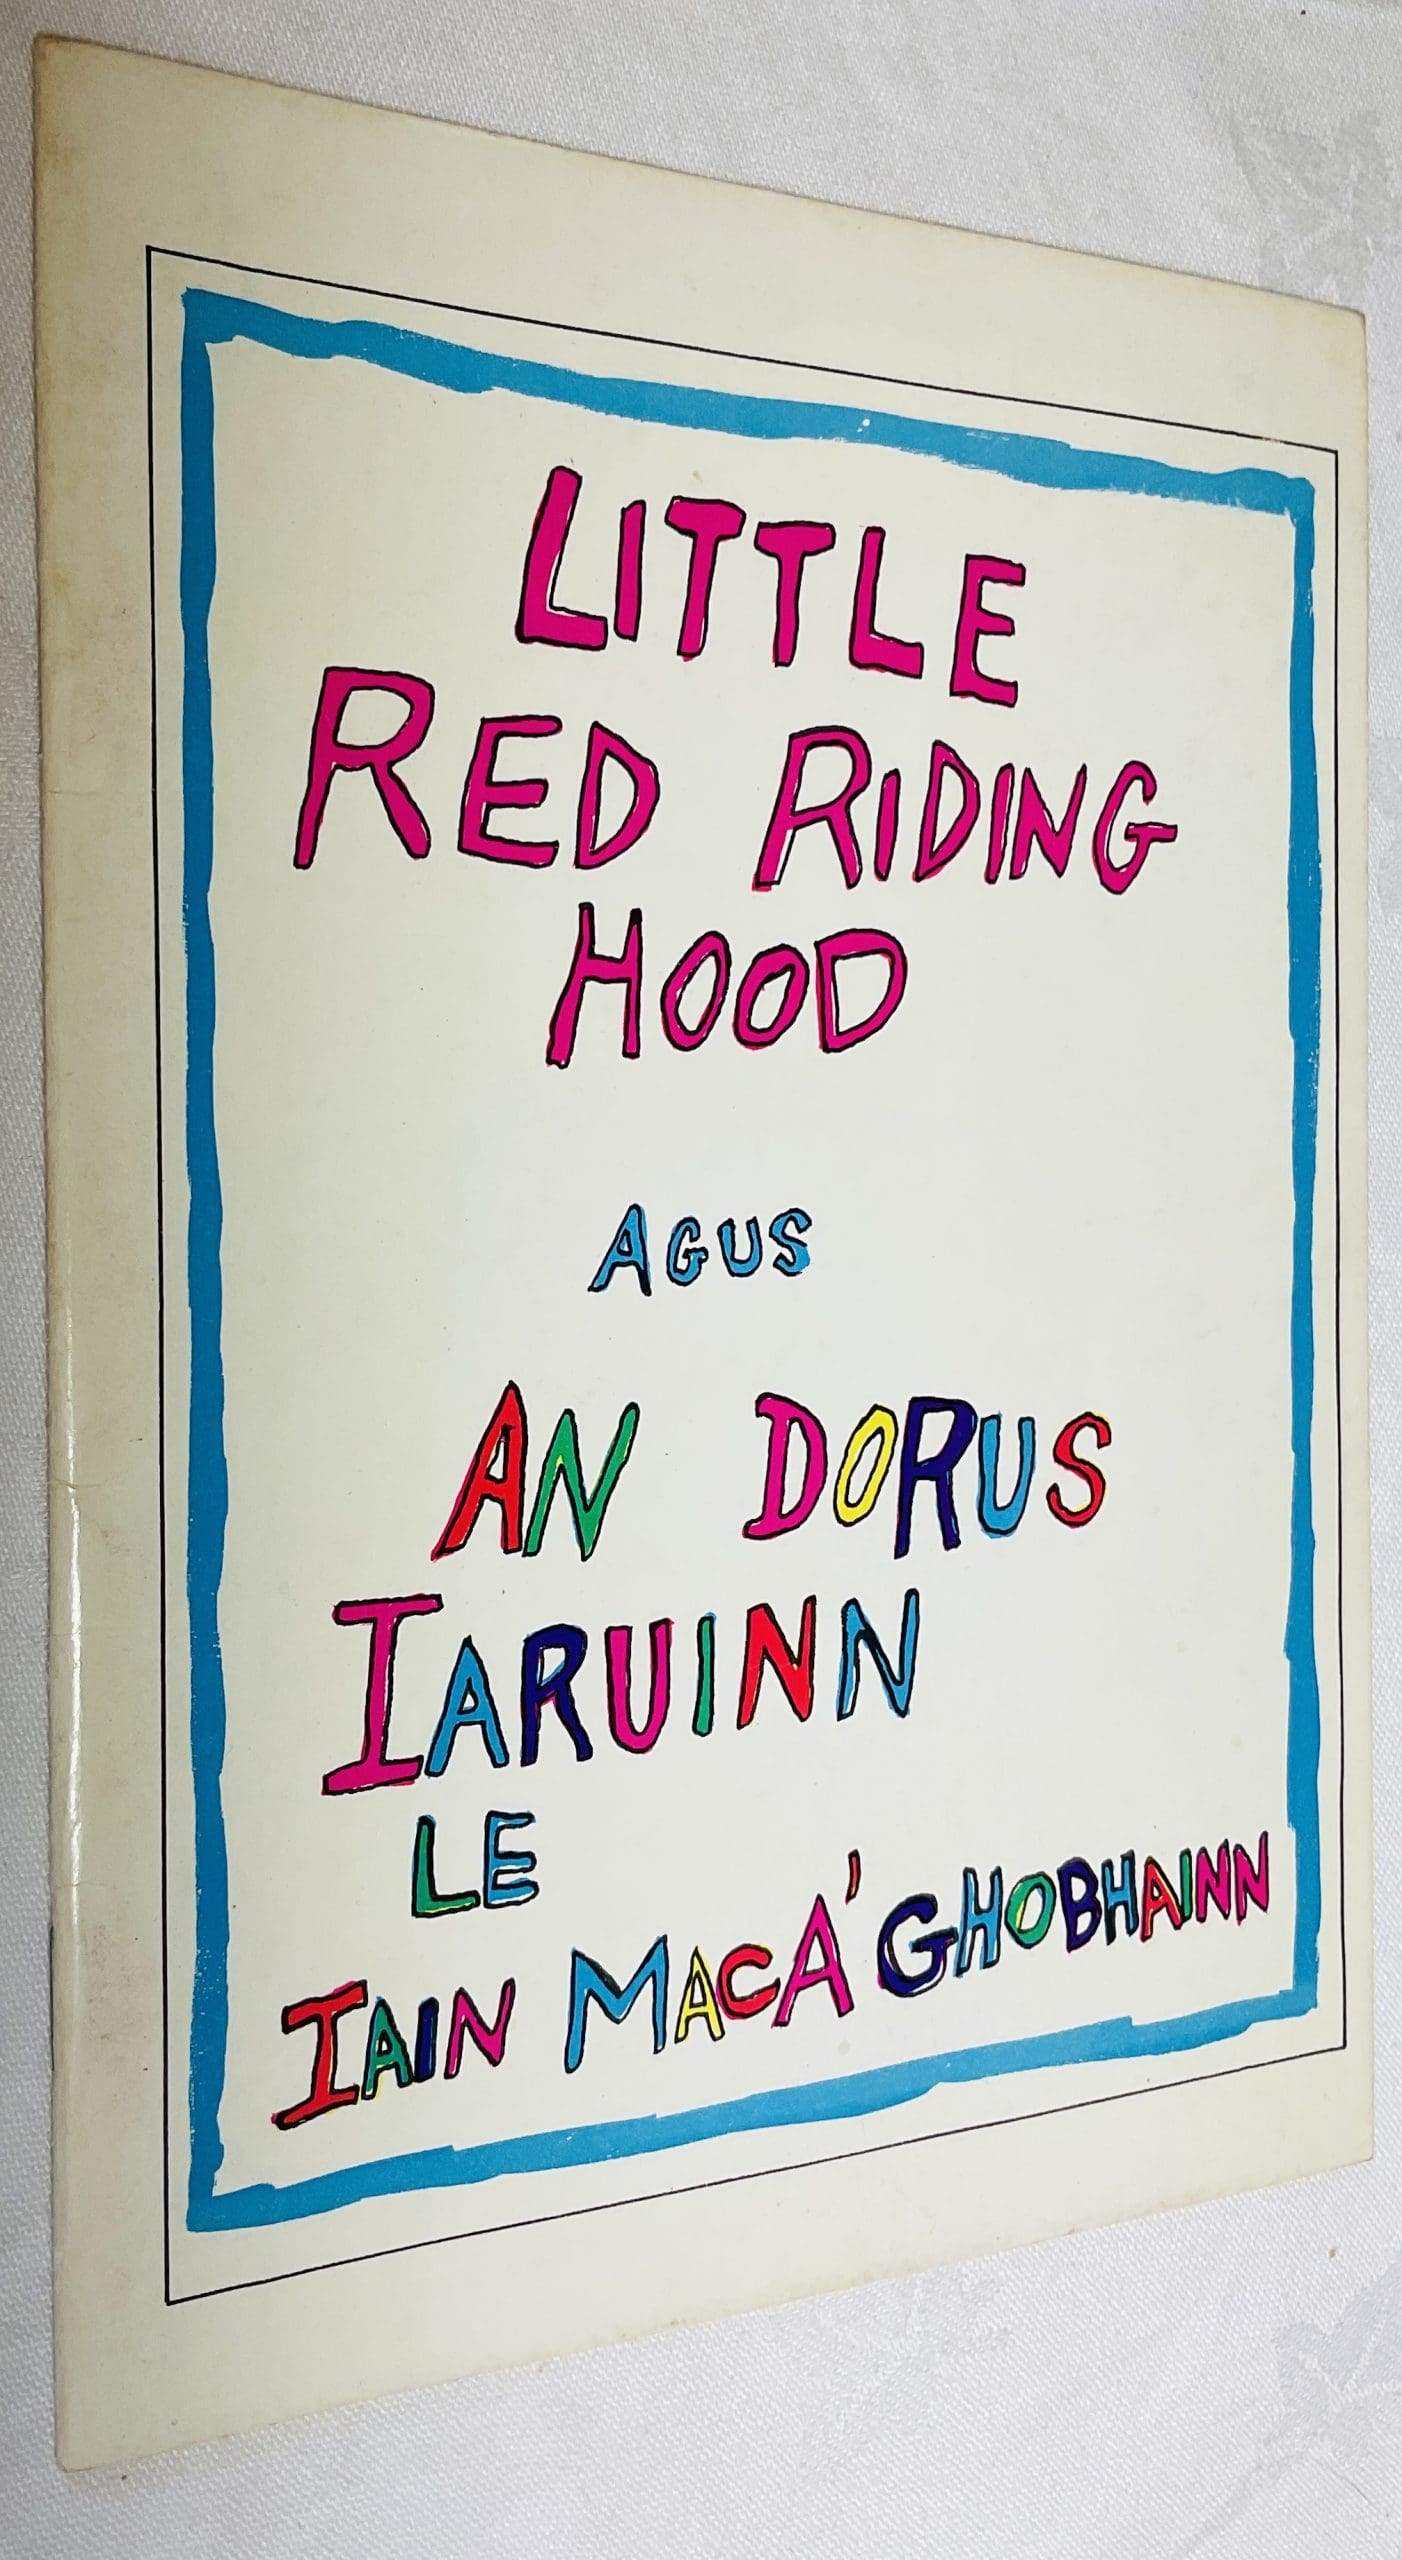 LITTLE
RED RIDING
HOOD
AGUS
AN DORUS
IARUINN
LE
IAIN MACA'GHOBHAINN